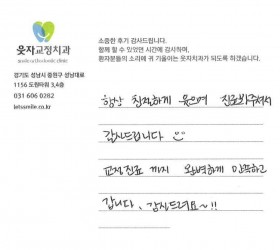 웃자교정치과
경기도 성남시 중원구 성남대로
1156 도원타워 3,4층
031 606 0282
letssmile.co.kr
소중한 후기 감사드립니다.
함께 할 수 있었던 시간에 감사하며,
환자분들의 소리에 귀 기울이는 웃자치과가 되도록 하겠습니다.
항상 친절하게 웃으며 진료봐주셔서
감사드립니다
교정진료 까지 완벽하게 만족하고
갑니다, 감사드려요~!!